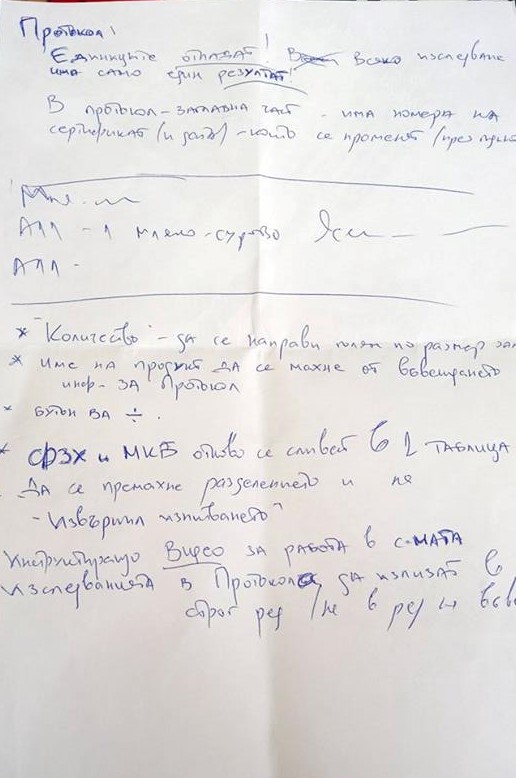 Протокол!
Единиците отпадат! Всяко изследване
има само един резултат!
В протокол - заглавна част - има номера на
сертификат (и дата) - които се променят (през
АПЛ - 1 мляко - сурово
АПЛ -
* "Количество" - да се направи по размер
* име на продукт да се махне от въвеждането
инф - за Протокол
* бутон за ÷.
* ФЗХ и МКБ отново се сливат в 1 таблица
Да се премахне разделението и на
- Извършил изпитването"
Инструктиращо Видео за работа в с-мата
Изследванията в Протокола да излизат в
строг ред /не в ред н